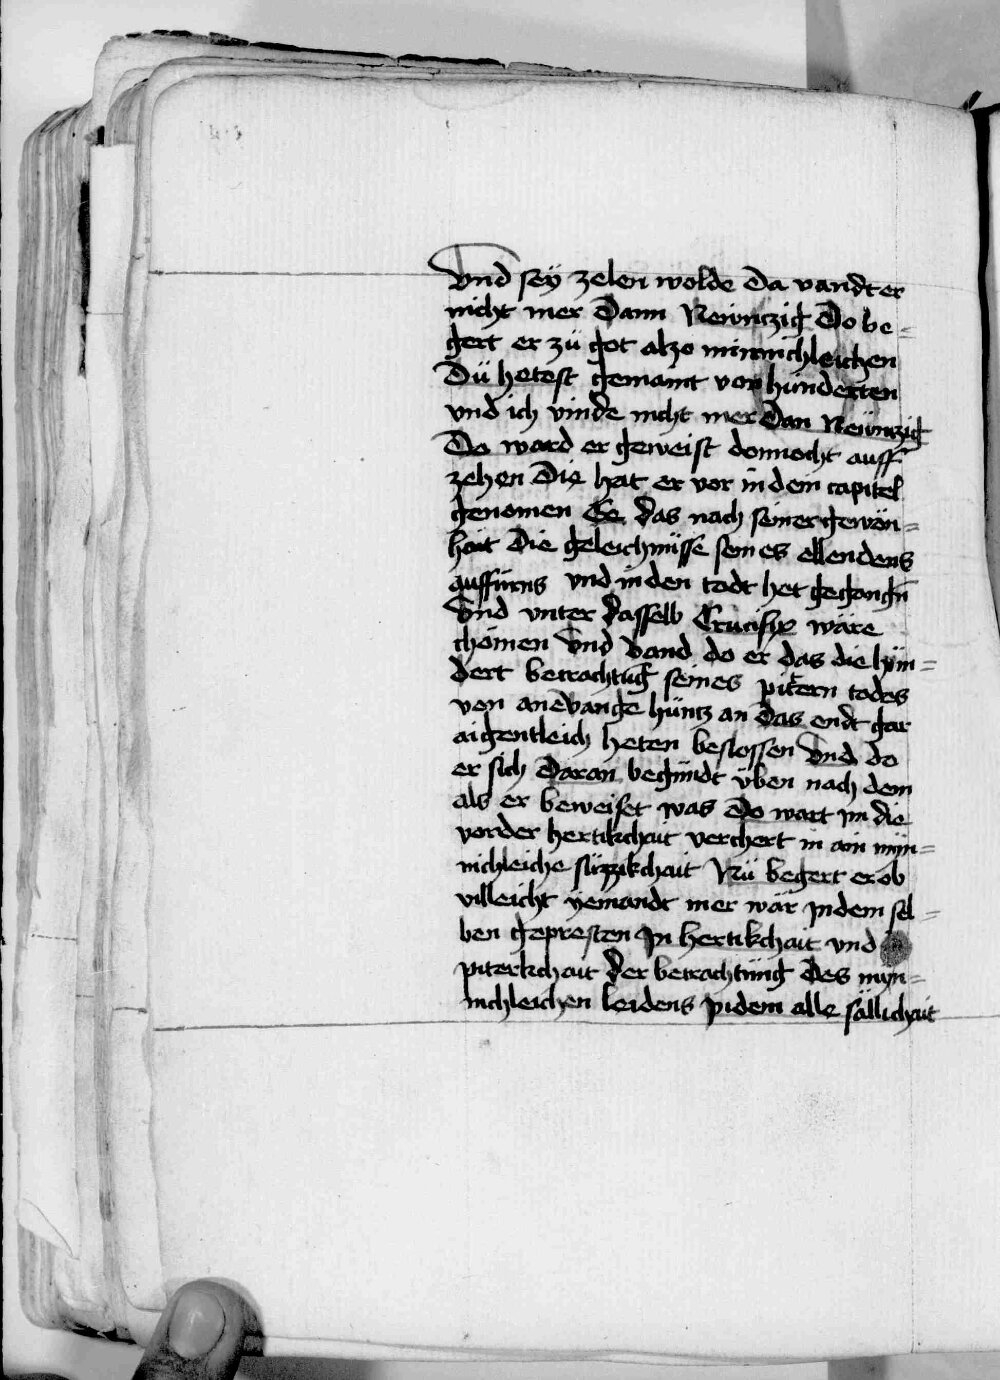 Vnd sey zelen wolde Da vandt er
nicht mer Dann Newntzig Do be=
gert er zü got alzo minnichleichen
Dü hetest gemaint von hünderten
vnd ich vinde nicht mer Dan Newntzig
Do ward er geweist donnocht auff
zehen Die hat er vor in dem capitel
genomen Ee das nach seiner gewön=
hait Die geleichnüsse seines ellendens
auffürns vnd in den todt het gegangn̄
Vnd vnter dasselb Crucifix wäre
chömen Vnd vand do er das die hün=
dert betrachtūg seines pittern todes
von anevange hüntz an Das endt gar
aigentleich heten beslossen Vnd do
er sich Daran begündt üben nach dem
als er beweiset was Do wart jm die
vorder hertikchait verchert in ain myn=
nichleiche süzzikchait Nü begert er ob
villeicht yemandt mer wär jn dem sel=
ben gepresten jn hertikchait vnd
piterkchait der betrachtüng Des myn=
nichleichen leidens jn dem alle sällichait